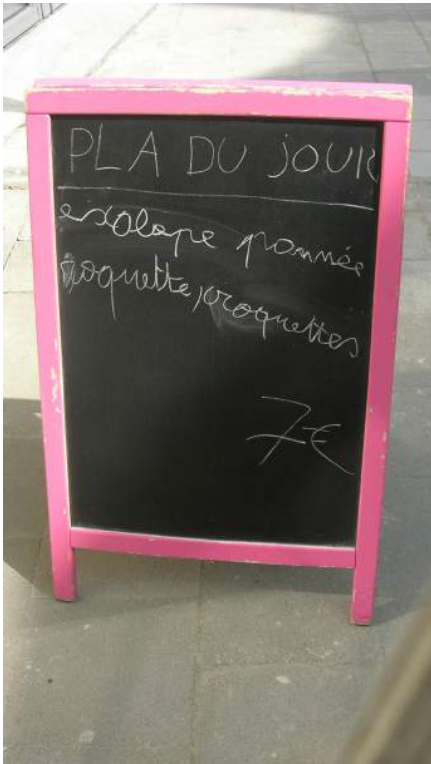 PLA DU JOUR
exolope pannée
roquette, croquettes
7€